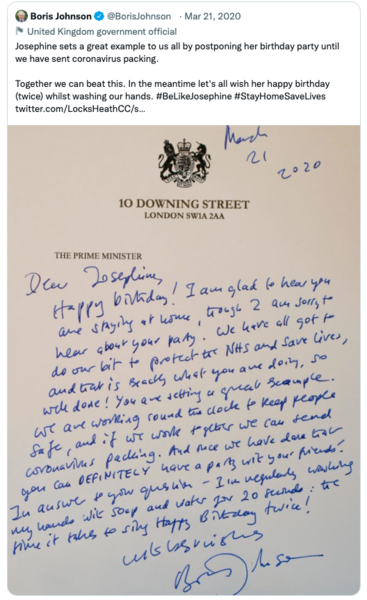 Boris Johnson @BorisJohnson · Mar 21, 2020
United Kingdom government official
Josephine sets a great example to us all by postponing her birthday party until
we have sent coronavirus packing.
Together we can beat this. In the meantime let's all wish her happy birthday
(twice) whilst washing our hands. #BeLikeJosephine #StayHomeSaveLives
twitter.com/LocksHeathCC/s...
March
21
2020
10 DOWNING STREET
LONDON SW1A 2AA
THE PRIME MINISTER
Dear Josephine,
Happy birthday! I am glad to hear you
are staying at home, though I am sorry to
hear about your party. We have all got to
do our bit to protect the NHS and save lives,
and that is exactly what you are doing, so
well done! You are setting a great example.
We are working round the clock to keep people
safe, and if we work together we can send
coronavirus packing. And once we have done that
you can DEFINITELY have a party with your friends!
In answer to your question - I'm regularly washing
my hands with soap and water for 20 seconds; the
time it takes to sing Happy Birthday twice!
with best wishes
Boris Johnson